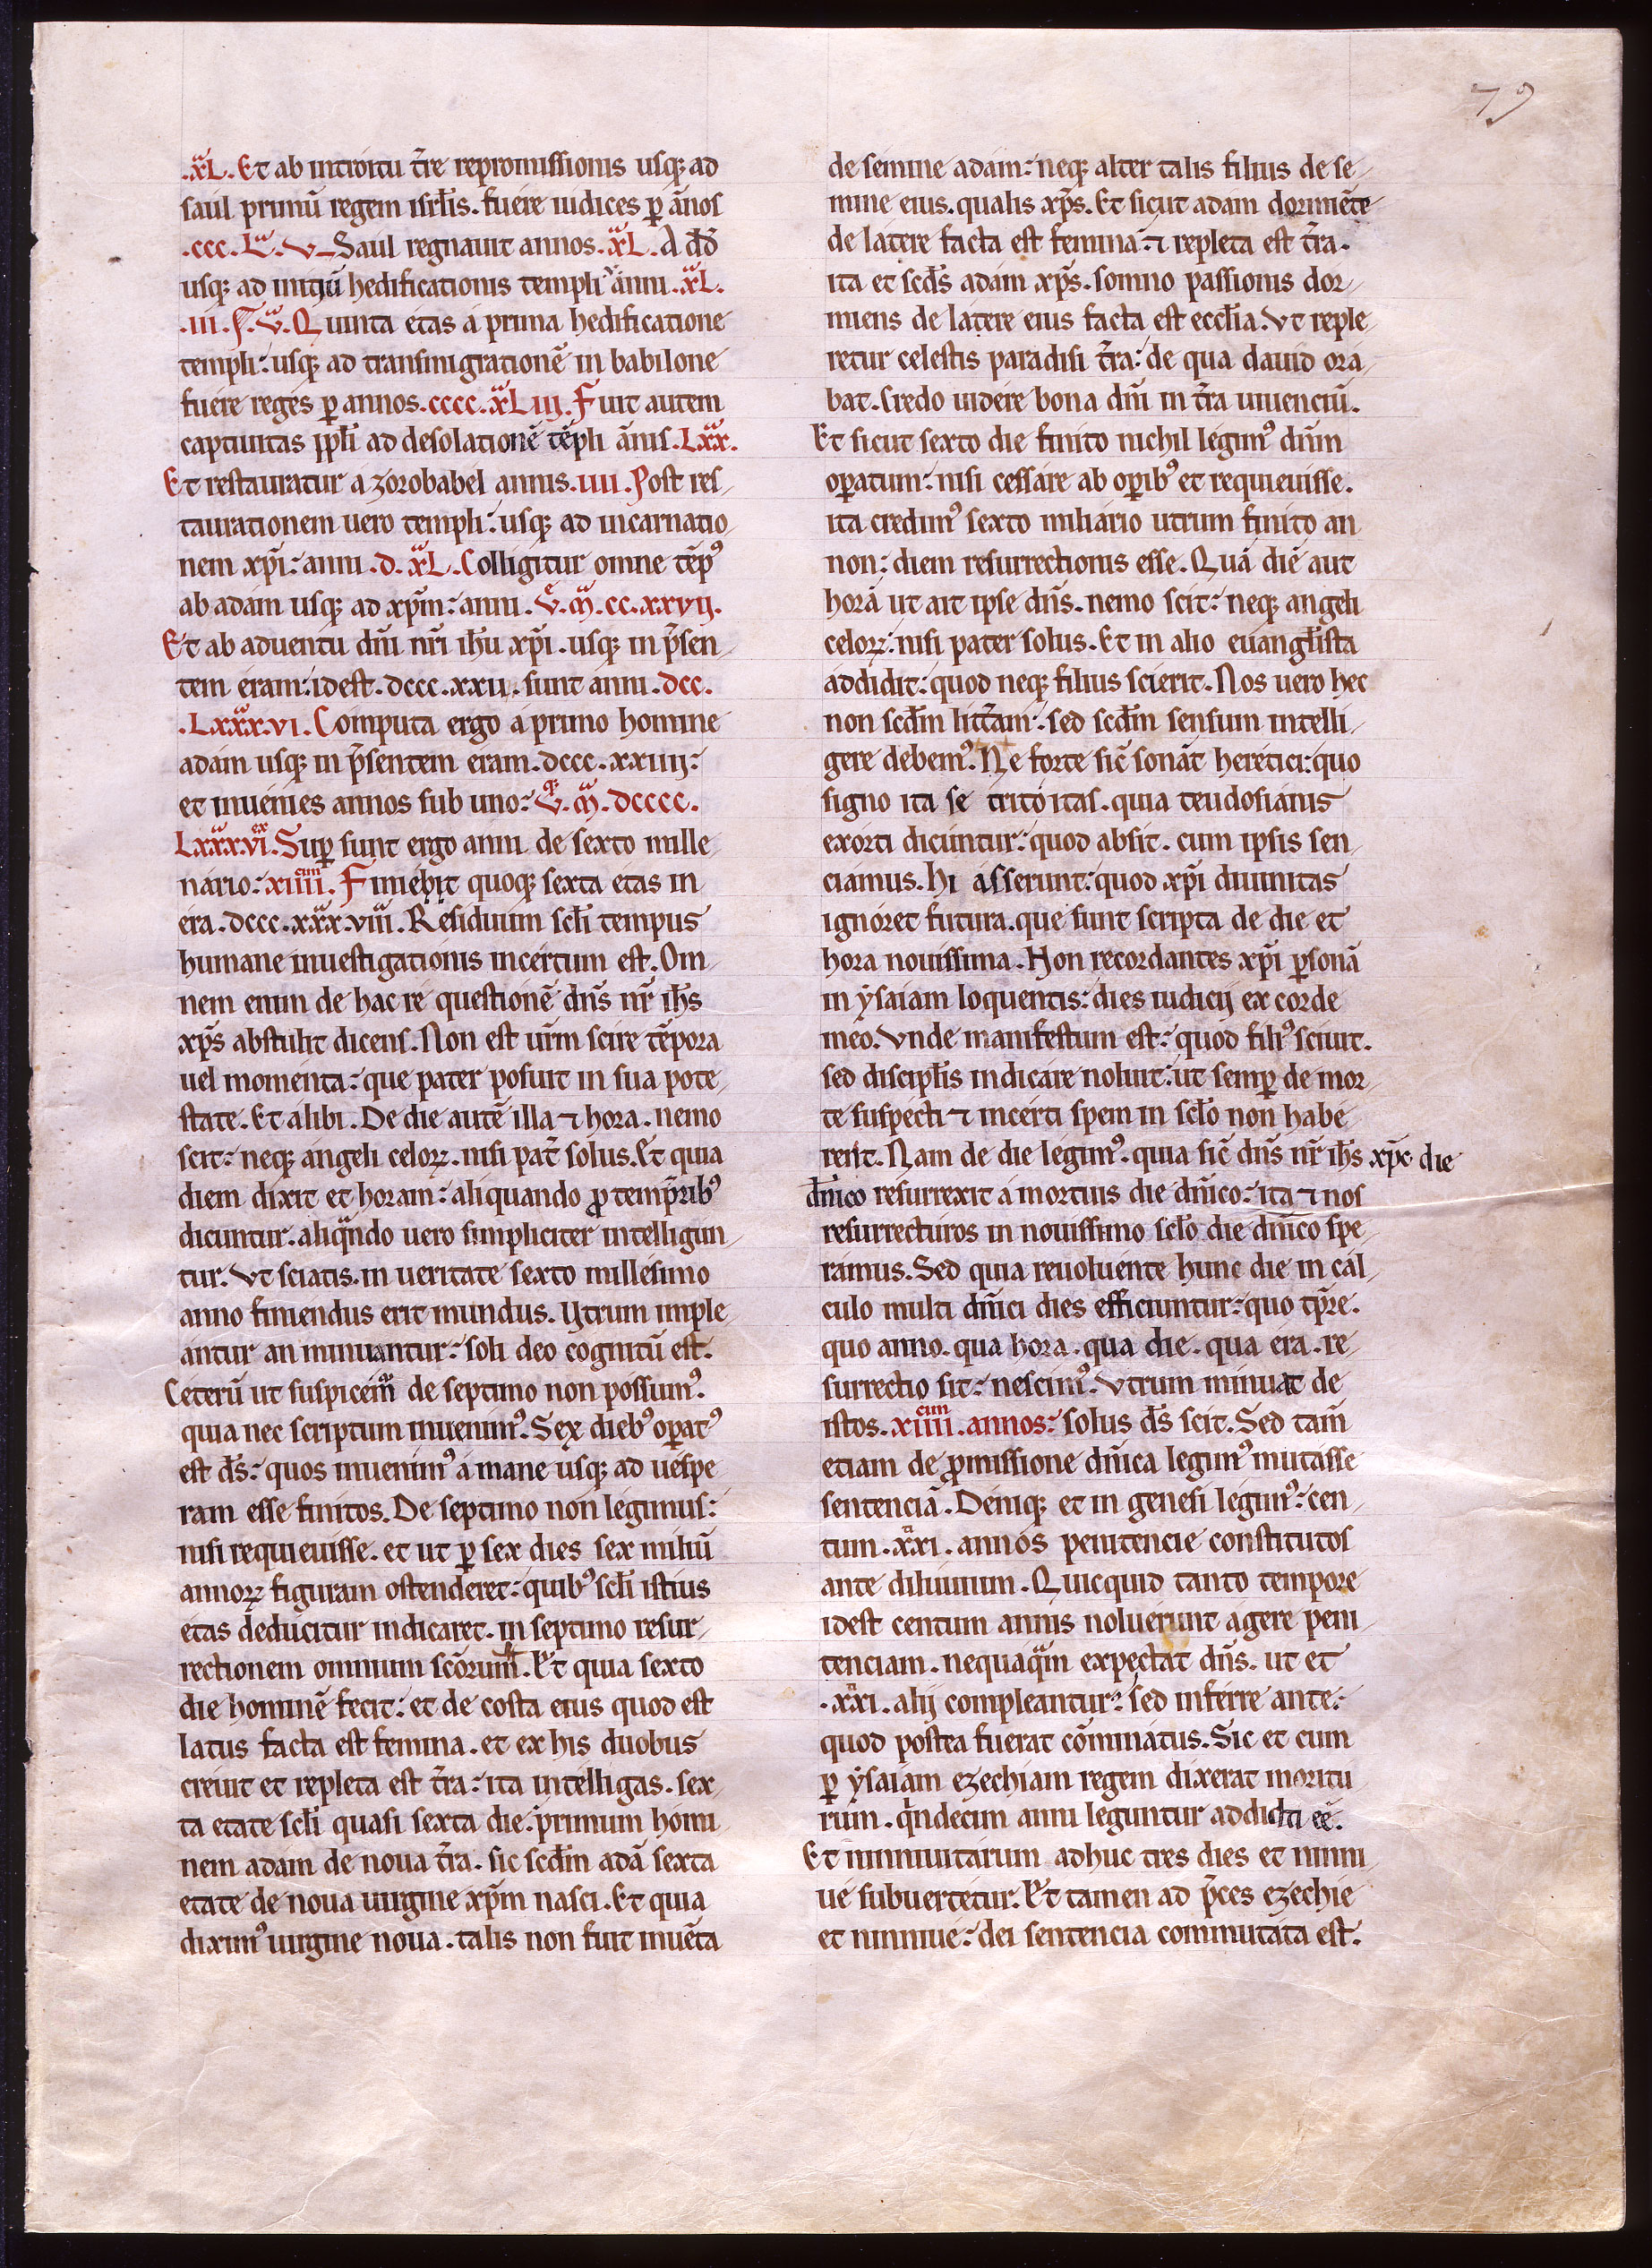 79
.xL. Et ab introitu t̄re repromissionis usq; ad
saul primū regem isrl̄is. fuere iudices ꝑ ānos
.ccc. L. v Saul regnauit annos. xL. A dd̄
usq; ad initiū hedificationis templi anni. xL.
.iii. Quinta etas a prima hedificatione
templi: usq; ad transmigrationē in babilone
fuere reges ꝑ annos. cccc. xL iij. Fuit autem
captiuitas ppl̄i ad desolationē tēpli ānis. Lxx.
Et restauratur a zorobabel annis. iiii. Post res
taurationem uero templi: usq; ad incarnatio
nem xp̄i: anni. d. xL. Colligitur omne tēpꝰ
ab adam usq; ad xp̄m: anni. v. m̄. cc. xxvij.
Et ab aduentu dn̄i nr̄i ih̄u xp̄i. usq; in p̄sen
tem eram: idest. dccc. xxii. sunt anni. dcc.
. Lxxx. vi. Computa ergo a primo homine
adam usq; in p̄sentem eram. dccc. xxiiij:
et inuenies annos sub uno: v. m̄. dcccc.
Lxxx.vi. Suꝑ sunt ergo anni de sexto mille
nario: xiiii. Finiebit quoq; sexta etas in
era. dccc. xxx. viii. Residuum scl̄i tempus
humane inuestigationis incertum est. Om
nem enim de hac re questionē dn̄s nr̄ ih̄s
xp̄s abstulit dicens. Non est ur̄m scire tēpora
uel momenta: que pater posuit in sua pote
state. Et alibi. De die autē illa ⁊ hora. nemo
scit: neq; angeli celoꝝ. nisi pat̄ solus. Et quia
diem dixit et horam: aliquando ꝓ temp̄ribꝰ
dicuntur. aliqᵃndo uero simpliciter intelligun
tur. Vt sciatis. in ueritate sexto millesimo
anno finiendus erit mundus. Vtrum imple
antur an minuantur: soli deo cognitū est.
Ceterū ut suspicem̄ de septimo non possumꝰ.
quia nec scriptum inuenimꝰ. Sex diebꝰ oꝑatꝰ
est ds̄: quos inuenimꝰ a mane usq; ad uespe
ram esse finitos. De septimo non legimus:
nisi requieuisse. et ut ꝑ sex dies sex miliū
annoꝝ figuram ostenderet: quibꝰ scl̄i istius
etas deducitur indicaret. in septimo resur
rectionem omnium scōrum. Et quia sexto
die hominē fecit: et de costa eius quod est
latus facta est femina. et ex his duobus
creuit et repleta est t̄ra: ita intelligas. sex
ta etate scl̄i quasi sexta die: primum homi
nem adam de noua t̄ra. sic scd̄m adā sexta
etate de noua uirgine xp̄m nasci. Et quia
diximꝰ uirgine noua. talis non fuit inuēta
de semine adam: neq; alter talis filius de se
mine eius. qualis xp̄s. Et sicut adam dormiēte
de latere facta est femina: ⁊ repleta est t̄ra.
ita et scd̄s adam xp̄s. somno passionis dor
miens de latere eius facta est eccl̄ia. Vt reple
retur celestis paradisi t̄ra: de qua dauid ora
bat. Credo uidere bona dn̄i in t̄ra uiuenciū.
Et sicut sexto die finito nichil legimꝰ dn̄m
oꝑatum: nisi cessare ab oꝑibꝰ et requieuisse.
ita credimꝰ sexto miliario utrum finito an
non: diem resurrectionis esse. Quā diē aut
horā ut ait ipse dn̄s. nemo scit: neq; angeli
celoꝝ: nisi pater solus. Et in alio euangl̄ista
addidit: quod neq; filius scierit. Nos uero hec
non scd̄m litt̄am: sed scd̄m sensum intelli
gere debemꝰ. Ne forte sic̄ sonāt heretici: quo
signo ita se tritoitas. quia teudosianis
exorti dicuntur: quod absit. cum ipsis sen
ciamus. Hi asserunt: quod xp̄i diuinitas
ignoret futura. que sunt scripta de die et
hora nouissima. Non recordantes xp̄i ꝑsonā
in ysaiam loquentis: dies iudicij ex corde
meo. Vnde manifestum est: quod filiꝰ sciuit.
sed discipl̄is indicare noluit: ut semꝑ de mor
te suspecti ⁊ incerti spem in scl̄o non habe
rent. Nam de die legimꝰ. quia sic̄ dn̄s nr̄ ih̄s xp̄c die
dn̄ico resurrexit a mortuis die dn̄ico: ita ⁊ nos
resurrecturos in nouissimo scl̄o die dn̄ico spe
ramus. Sed quia reuoluente hunc die in cal
culo multi dn̄ici dies efficiuntur: quo tp̄re.
quo anno. qua hora. qua die. qua era. re
surrectio sit: nescimꝰ. Vtrum minuat de
istos. xiiii. annos: solus ds̄ scit. Sed tam̄
etiam de ꝓmissione dn̄ica legimꝰ mutasse
sentenciā. Deniq; et in genesi legimꝰ: cen
tum. xxi. annos penitencie constitutos
ante diluuium. Quicquid tanto tempore
idest centum annis noluerunt agere peni
tenciam. nequaqᵃm expectat dn̄s. ut et
. xxi. alij compleantur: sed inferre ante:
quod postea fuerat cōminatus. Sic et cum
ꝑ ysaiam ezechiam regem dixerat moritu
rum. qⁱndecim anni leguntur addicti eē.
Et niniuitarum adhuc tres dies et nini
ue subuertetur. Et tamen ad p̄ces ezechie
et niniue: dei sentencia commutata est.